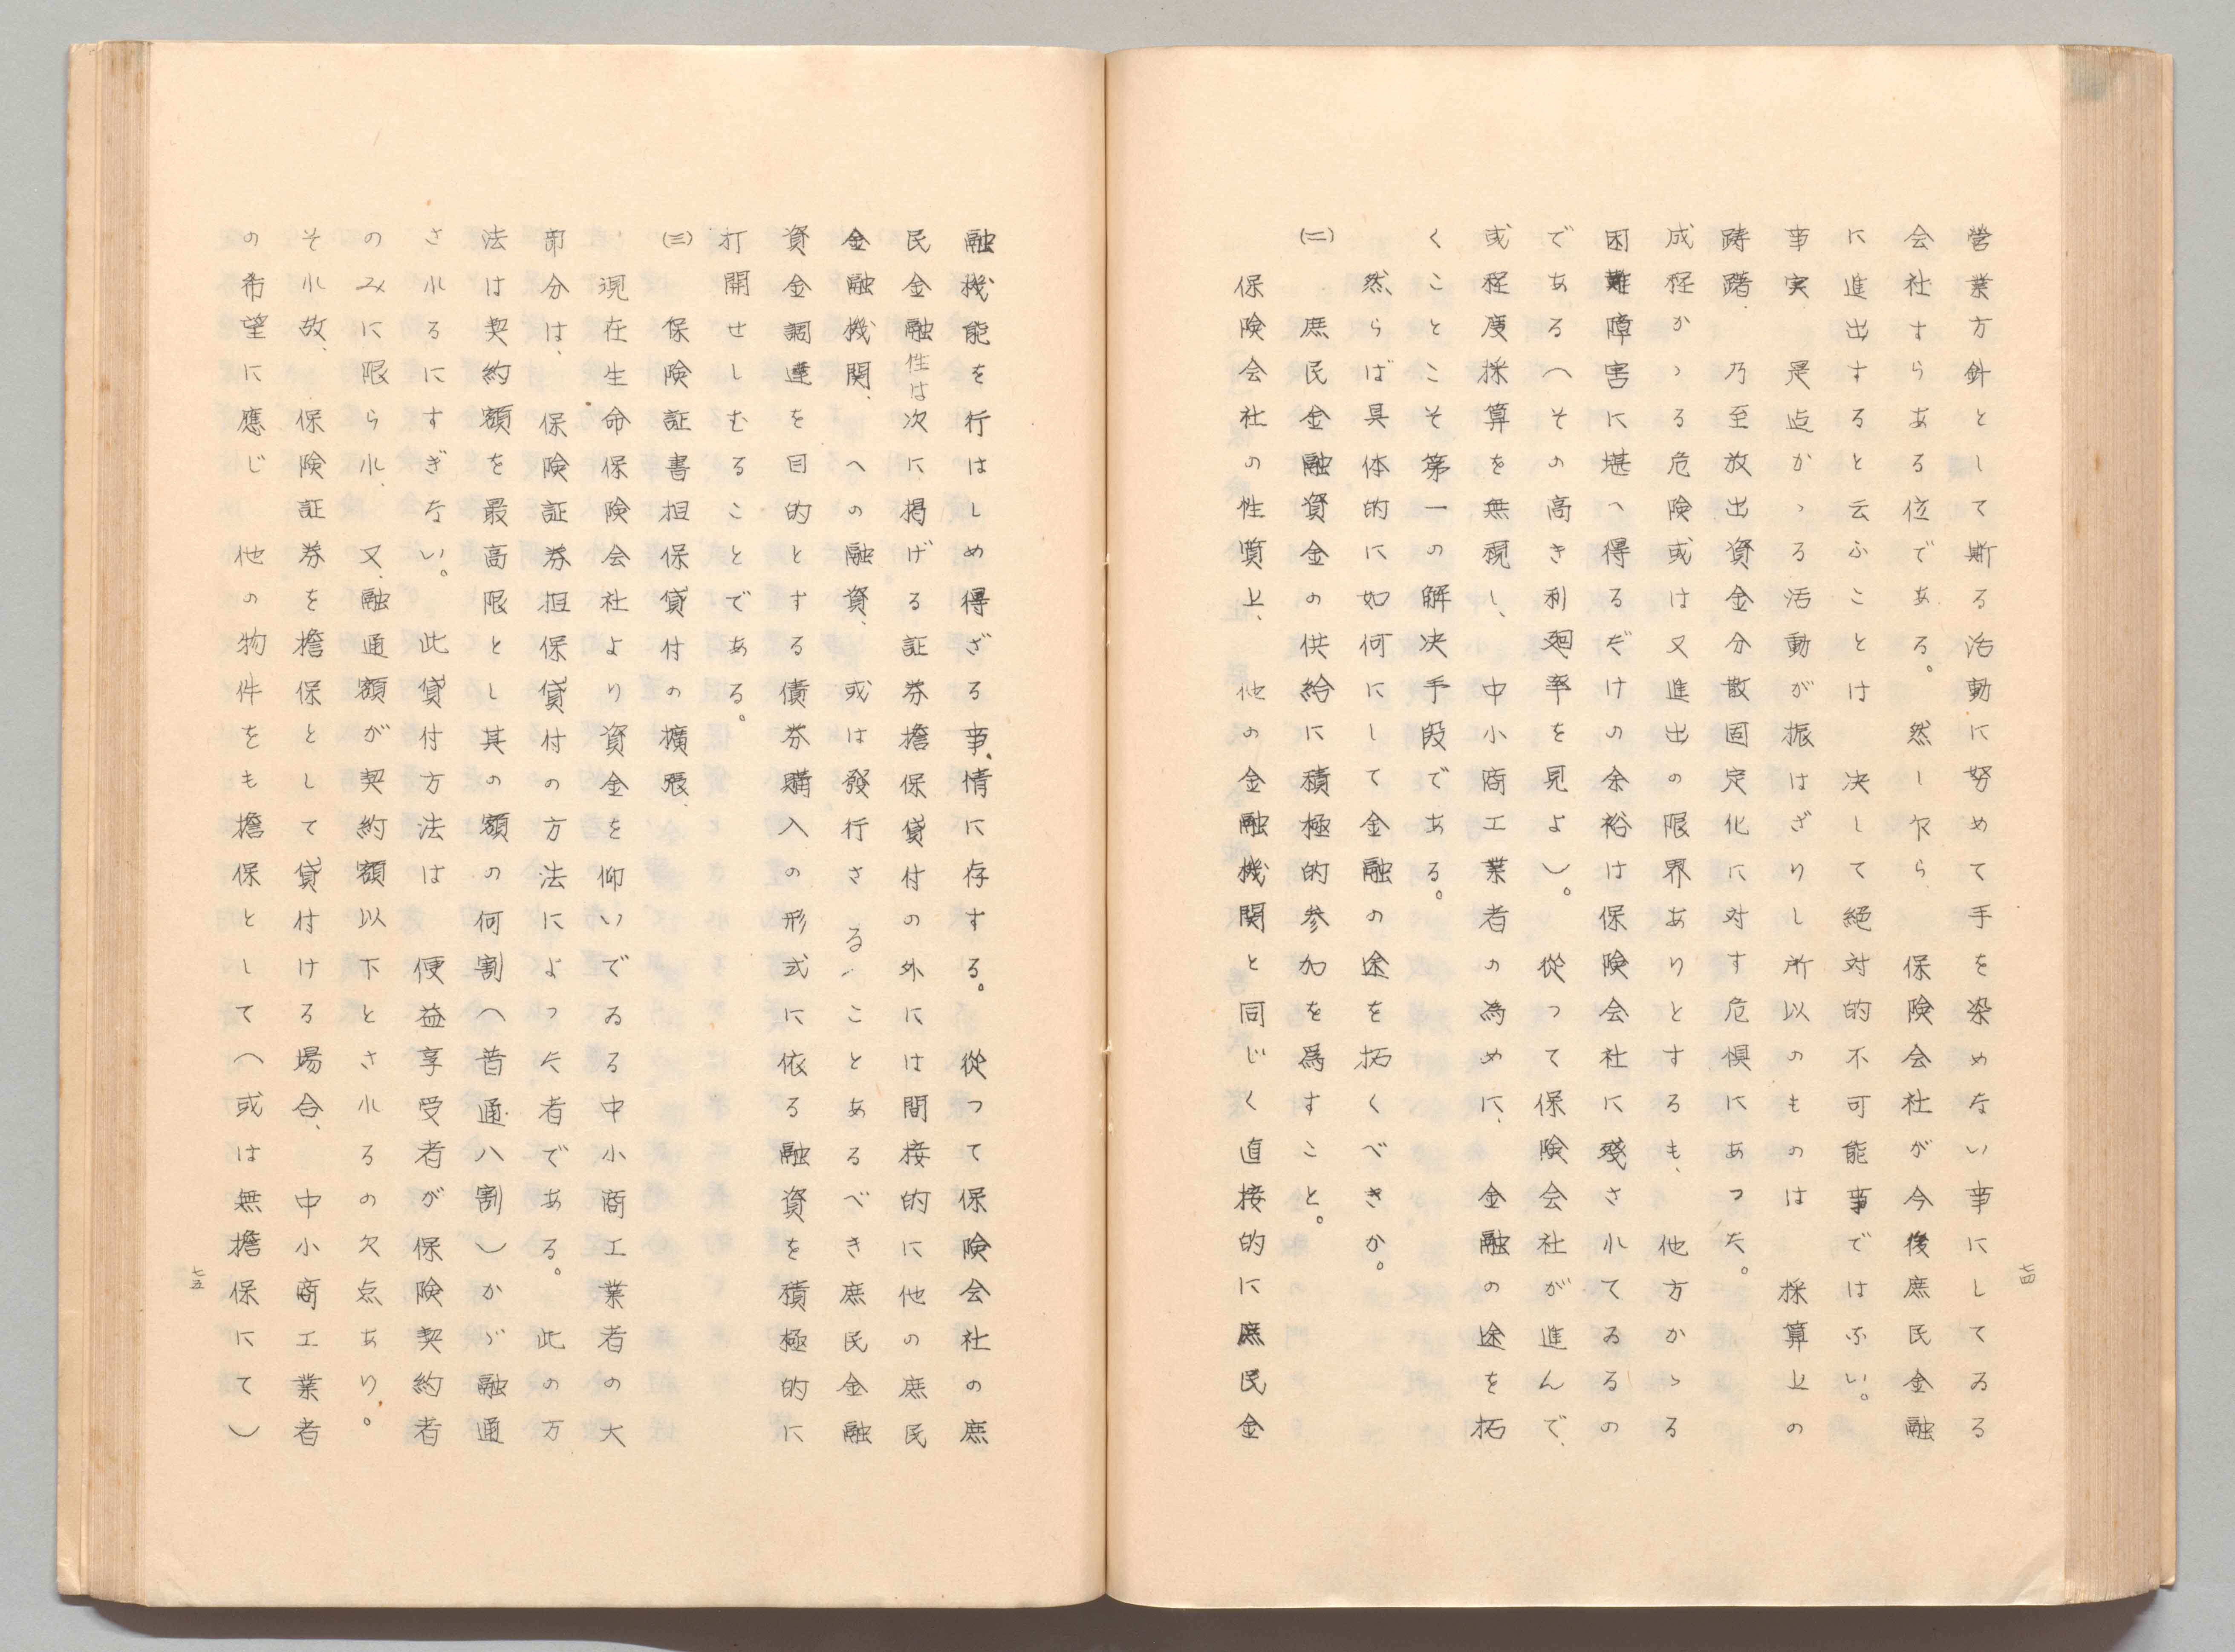 営業方針として斯る活動に努めて手を染めない事にしてゐる
会社すらある位である。然し乍ら　保険会社が今後庶民金融
に進出すると云ふことは　決して絶対的不可能事ではない。
事実　是迄かゝる活動が振はざりし所以のものは　採算上の
躊躇　乃至放出資金分散固定化に対す危惧にあつた。
成程かゝる危険或は又進出の限界ありとするも、他方かゝる
困難障害に堪へ得るだけの余裕は保険会社に残されてゐるの
である（その高き利廻率を見よ）。従つて保険会社が進んで、
或程度採算を無視し、中小商工業者の為めに、金融の途を拓
くことこそ第一の解決手段である。
然らば具体的に如何にして金融の途を拓くべきか。
(二)　庶民金融資金の供給に積極的参加を為すこと。
保険会社の性質上、他の金融機関と同じく直接的に庶民金
七四
融機能を行はしめ得ざる事情に存する。従つて保険会社の庶
民金融性は次に掲げる証券担保貸付の外には間接的に他の庶民
金融機関、への融資、或は発行さるゝことあるべき庶民金融
資金調達を目的とする債券購入の形式に依る融資を積極的に
打開せしむることである。
(三)　保険証書担保貸付の擴張、
現在生命保険会社より資金を仰いでゐる中小商工業者の大
部分は、保険証券担保貸付の方法によつた者である。此の方
法は契約額を最高限とし其の額の何割（普通八割）かゞ融通
されるにすぎない。此貸付方法は　便益享受者が保険契約者
のみに限られ、又、融通額が契約額以下とされるの欠点あり。
それ故、保険証券を擔保として貸付ける場合、中小商工業者
の希望に應じ　他の物件をも擔保として（或は無擔保にて）
七五